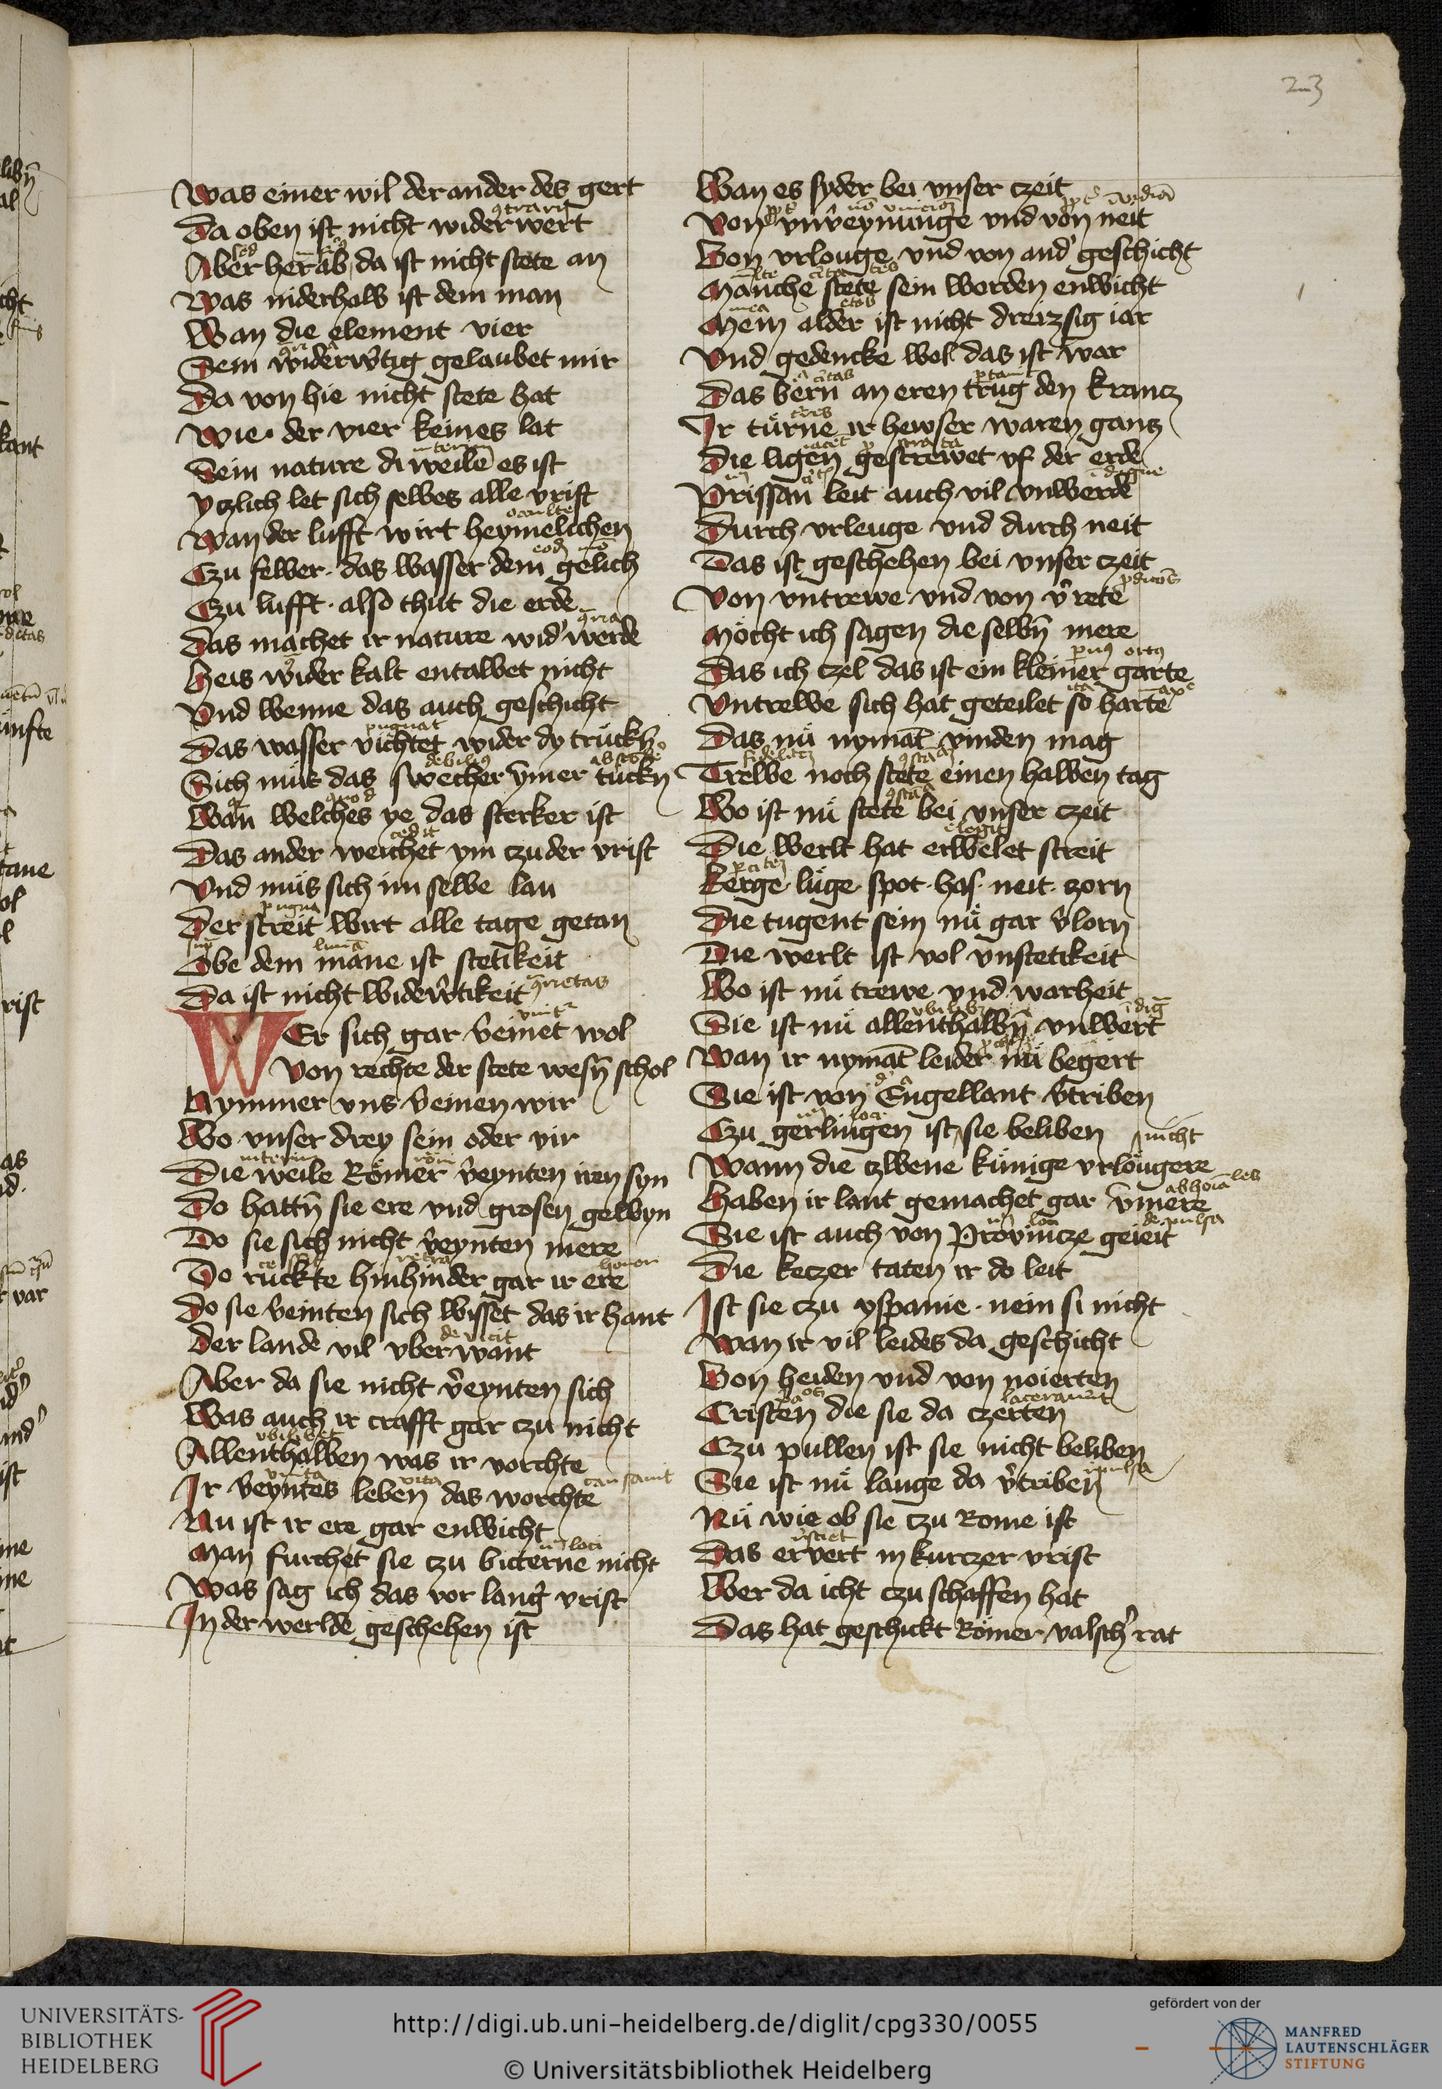 23
Was einer wil der ander des gert
Da oben ist nicht widerwert
Aber her ab da ist nicht stete an
Was niderhalb ist dem man
Wan die element vier
Sein widerwtig gelaubet mir
Da von hie nicht stete hat
Wie der vier keines lat
Sein nature di weile es ist
Yczlich let sich selbes alle vrist
Wan der lufft wirt heymelichen
Czu fewer das wasser dem gelich
Czu lufft also thut die erde
Das machet ir nature wid' werde
Heis wider kalt entalbet nicht
Vnd wenne das auch geschicht
Das wasser vichtet wider dy truckn
Sich mus das swecher ymer tuckn
Wan welches ye das sterker ist
Das ander weichet ym czu der vrist
Vnd mus sich im selbe lan
Der streit wirt alle tage getan
Obe dem mane ist stetikeit
Da ist nicht widerwtikeit
Wer sich gar veinet wol
Von rechte der stete wesn schol
Nymmer vns veinen wir
Wo vnser drey sein oder vir
Die weile Römer veynten iren syn
Do hattn sie ere vnd grosen gewyn
Do sie sich nicht veynten mere
Do ruckte hinhinder gar ir ere
Do sie veinten sich wisset das ir hant
Der lande vil vberwant
Aber da sie nicht veynten sich
Was auch ir crafft gar czu nicht
Allenthalben was ir vorchte
Ir veyntes leben das worchte
Nu ist ir ere gar enwicht
Man furchet sie czu bitterne nicht
Was sag ich das vor lang vrist
In der werlde geschehen ist
Wan es syder bei vnser czeit
Von vnveynunge vnd von neit
Von vrlouge vnd von and' geschicht
Manche stete sein worden enwicht
Mein alder ist nicht dreizsig iar
Vnd gedencke wol das ist war
Das bern an eren trug den krancz
Ir türne ir hewser waren gantz
Die ligen gestrewet vf der erde
Prissan leit auch vil vnwerde
Durch vrleuge vnd durch neit
Das ist geschehen bei vnser czeit
Von vntrewe vnd von v'rete
Möcht ich sagen die selbn mere
Das ich czel das ist ein kleiner garte
Vntrewe sich hat geteilet so harte
Das nü nymat vinden mag
Trewe noch stete einen halben tag
Wo ist nü stete bei vnser czeit
Die werlt hat erwelet streit
Kerge lüge spot has neit zorn
Die tugent sein nü gar v'lorn
Die werlt ist vol vnstetikeit
Wo ist nü trewe vnd warheit
Sie ist nü allenthalbn vnwert
Wan ir nymat leider nü begert
Sie ist von Engellant v'triben
Czu gerlingen ist sie beliben nicht
Wann die czwene künige vrlougere
Haben ir lant gemachet gar vnmere
Sie ist auch von Provincze geieit
Die keczer taten ir do leit
Ist sie czu yspanie nein si nicht
Wan ir vil leides da geschicht
Von heiden vnd von noierten
Cristen die sie da czerten
Czu pullen ist sie nicht beliben
Sie ist nü lange da v'triben
Nü wie ob sie czu Rome ist
Das ervert in kurczer vrist
Wer da icht czu schaffen hat
Das hat geschickt Römer valsch' rat
UNIVERSITÄTS-
BIBLIOTHEK
HEIDELBERG
http://digi.ub.uni-heidelberg.de/diglit/cpg330/0055
© Universitätsbibliothek Heidelberg
gefördert von der
MANFRED
LAUTENSCHLÄGER
STIFTUNG